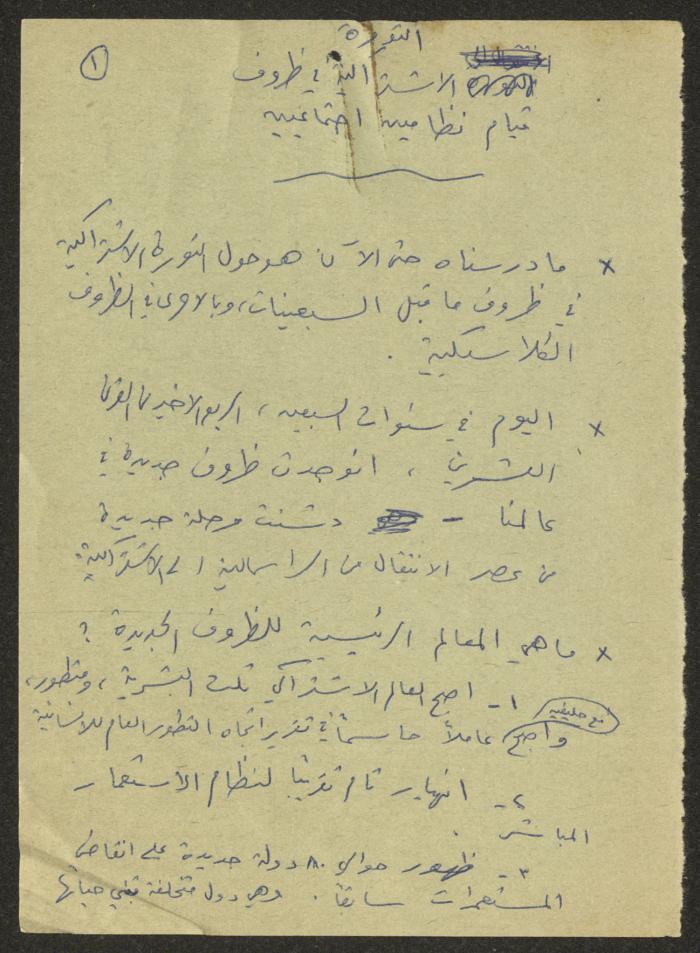 ١
الثورة
الاشتراكية في ظروف
قيام نظامين اجتماعيين
× ما درسناه حتى الآن هو حول الثورة الاشتراكية
في ظروف ما قبل السبعينات، وبالاحرى في الظروف
الكلاسيكية .
× اليوم في سنوات السبعين، الربع الاخير من القرن
العشرين ، انوجدت ظروف جديدة في
عالمنا - دشنت مرحلة جديدة
من عصر الانتقال من الراسمالية الى الاشتراكية
× ما هي المعالم الرئيسية للظروف الجديدة ؟
١- اصبح العالم الاشتراكي ثلث البشرية ، ومتطور،
واصبح مع حليفيه عاملاً حاسماً في تقرير اتجاه التطور العام للانسانية
٢- انهيار تام تقريبًا لنظام الاستعمار
المباشر .
٣- ظهور حوالي ٨٠ دولة جديدة على انقاض
المستعمرات سابقًا . وهي دول متخلفة تبني حياتها